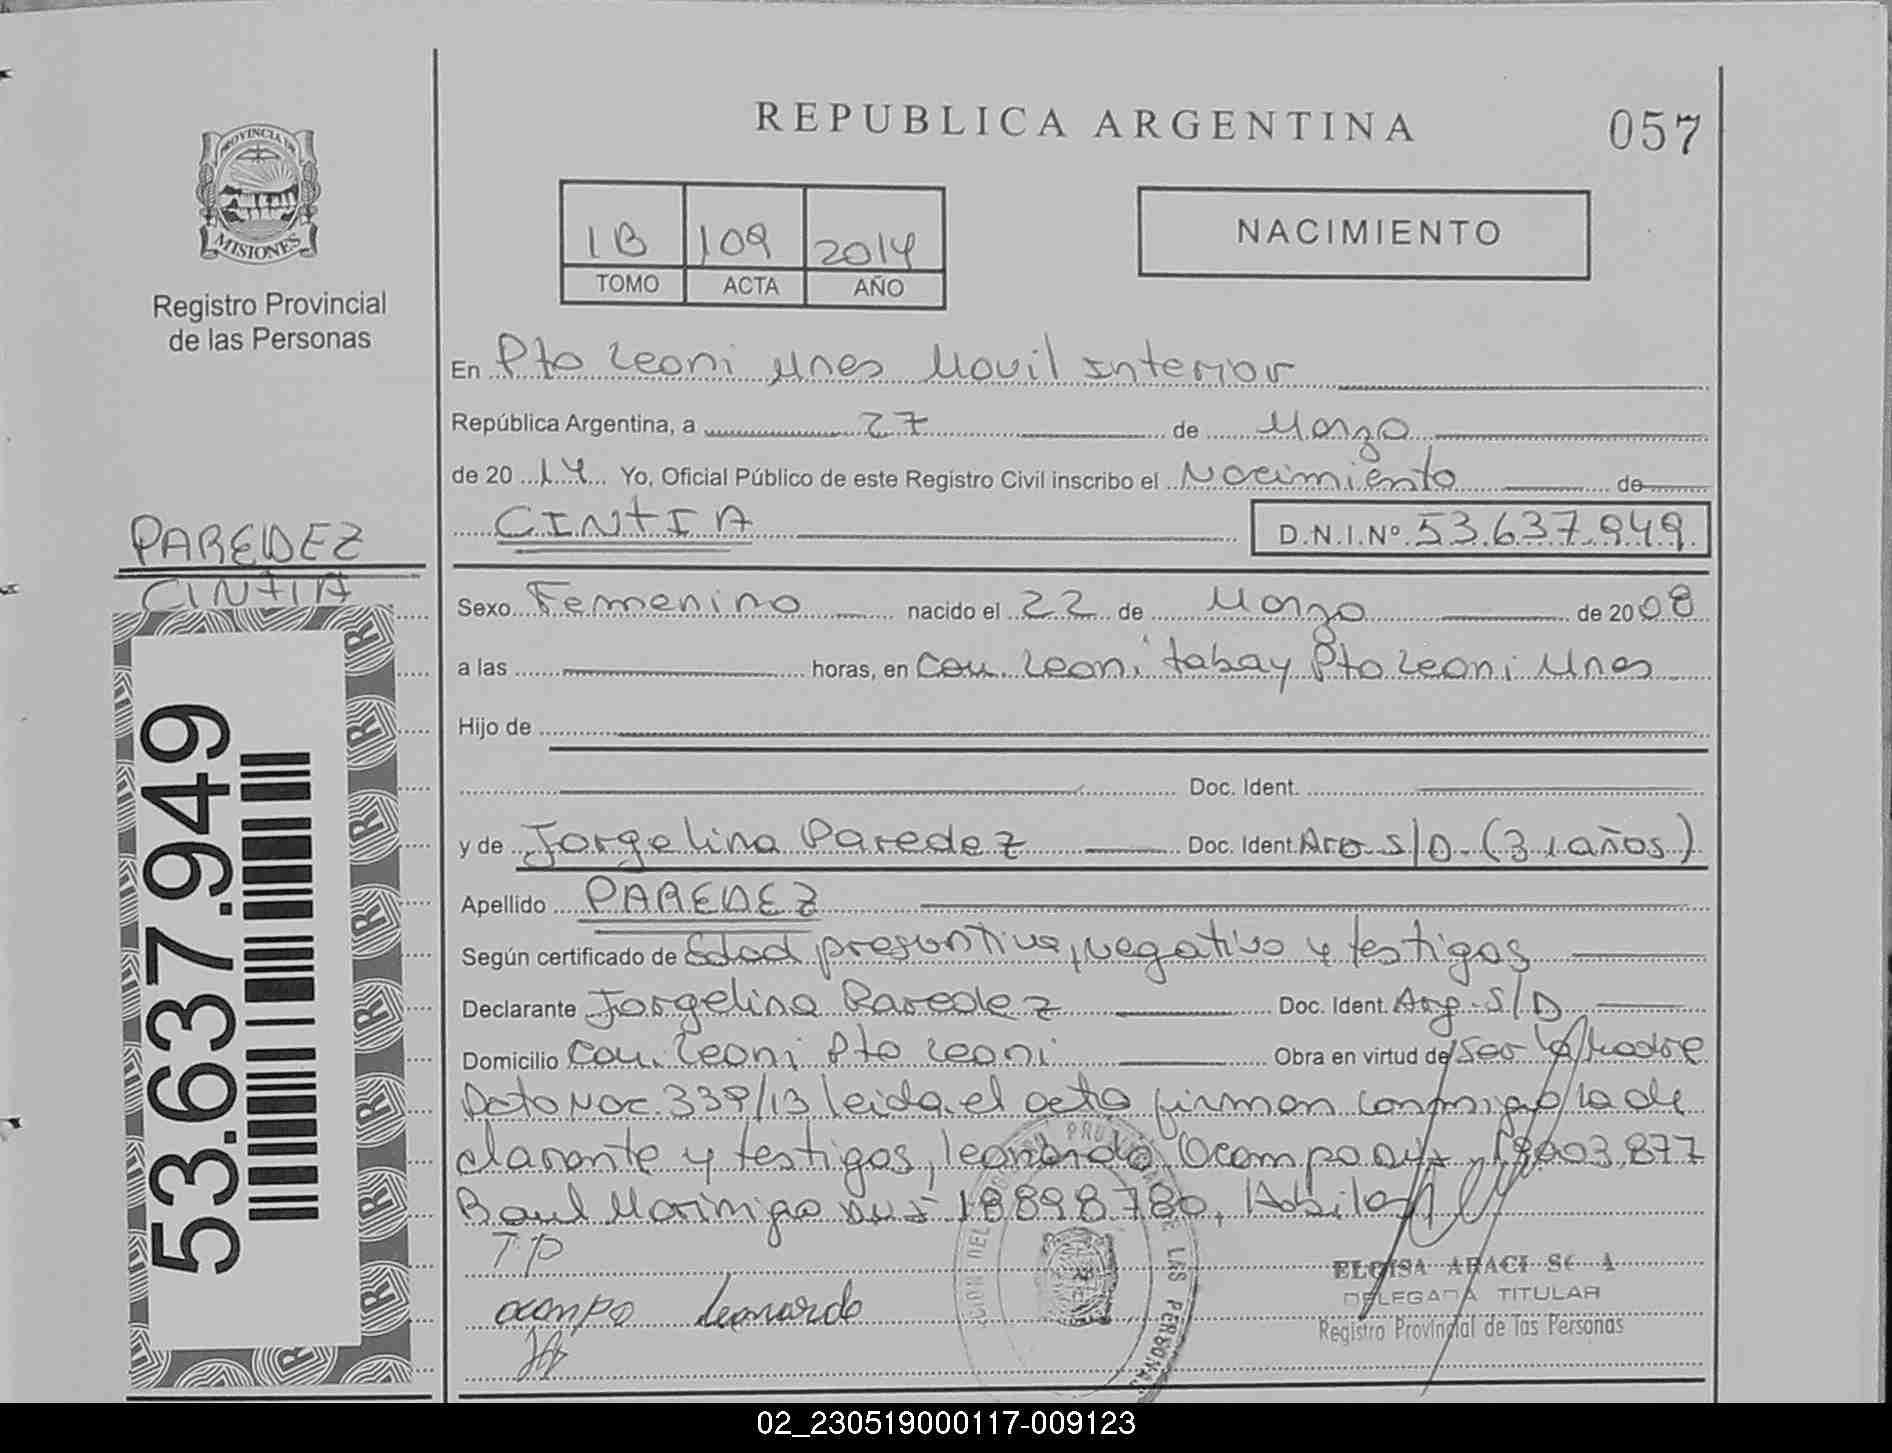 REPUBLICA ARGENTINA
057
PROVINCIA DE
MISIONES
Registro Provincial
de las Personas
1B 109 2014
TOMO ACTA AÑO
NACIMIENTO
En Pto Leoni Mnes Movil Interior
República Argentina, a 27 de Marzo
de 2014 Yo, Oficial Público de este Registro Civil inscribo el Nacimiento de
CINTIA D.N.I.Nº 53.637.949
PAREDEZ
CINTIA
53.637.949
Sexo Femenino nacido el 22 de Marzo de 2008
a las horas, en Com. Leoni tabay Pto Leoni Mnes
Hijo de
Doc. Ident.
y de Jorgelina Paredez Doc. Ident. Arg. S/D. (31 años)
Apellido PAREDEZ
Según certificado de Edad presuntiva, negativo y testigos
Declarante Jorgelina Paredez Doc. Ident. Arg. S/D
Domicilio Com. Leoni Pto Leoni Obra en virtud de Ser la Madre
Dcto Nac. 339/13 leida el acta firman conmigo la de
clarante y testigos, leonardo Ocampo .877
Raul Morinigo 18898780,
TP
ocampo Leonardo
ELOISA ARACI
DELEGADA TITULAR
Registro Provincial de las Personas
DE LAS PERSONAS
02_230519000117-009123